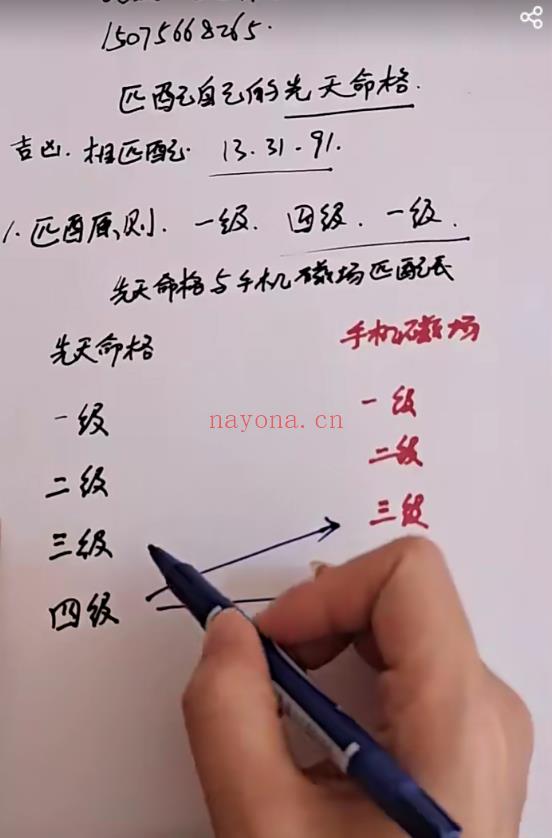 15075668265.
匹配自己的先天命格.
吉凶.相匹配 13.31.91.
1.匹配原则.一级.四级.一级.
先天命格与手机磁场匹配
先天命格 手机磁场
一级 一级
二级 二级
三级 三级
四级
nayona.cn